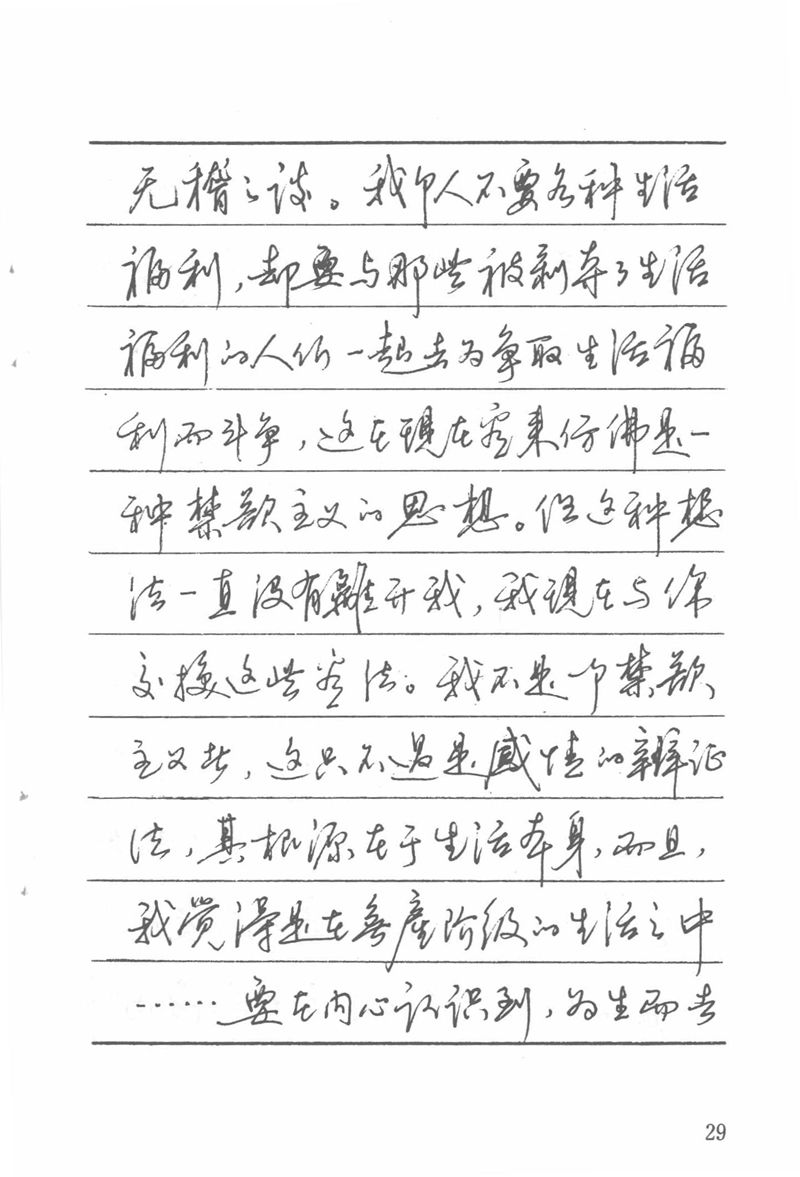 无稽之谈。我个人不要各种生活
福利，却要与那些被剥夺了生活
福利的人们一起去为争取生活福
利而斗争，这在现在看来仿佛是一
种禁欲主义的思想。但这种想
法一直没有離开我，我现在与你
交换这些看法。我不是一个禁欲
主义者，这只不过是感情的辩证
法，其根源在于生活本身，而且，
我觉得是在無產阶级的生活之中
……要在内心认识到，为生而去
29